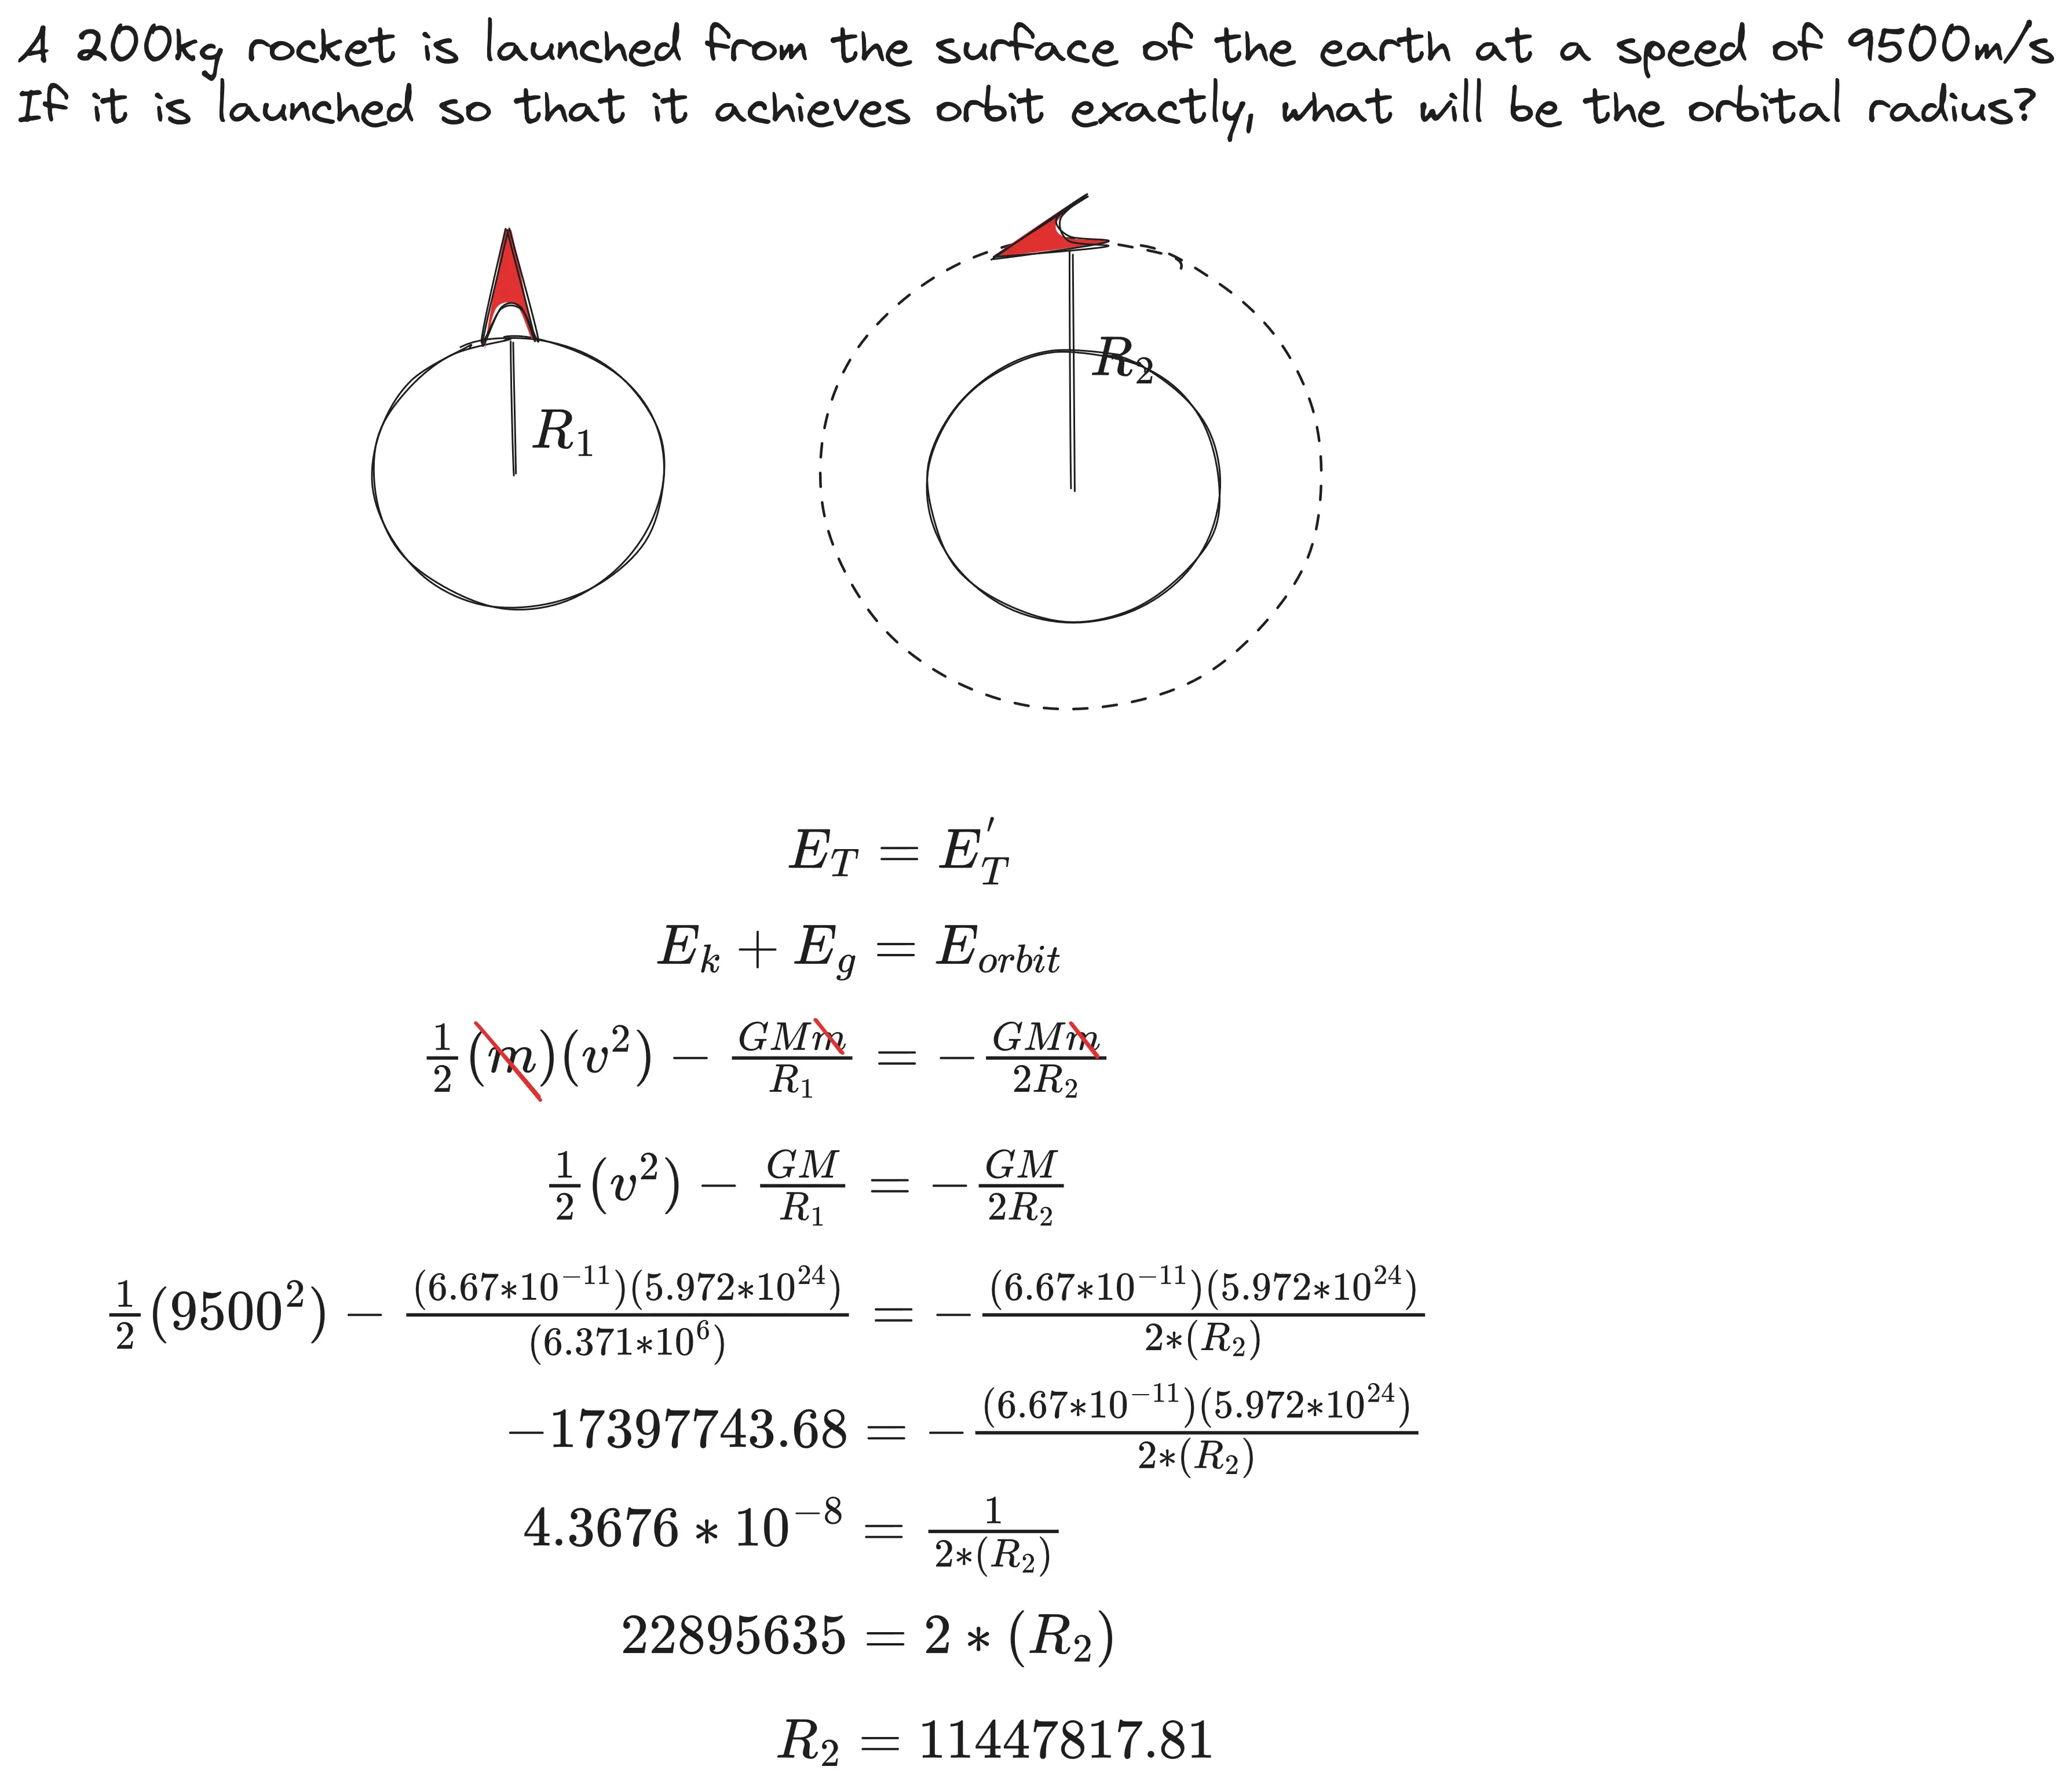 A 200kg rocket is launched from the surface of the earth at a speed of 9500m/s
If it is launched so that it achieves orbit exactly, what will be the orbital radius?
R₁
R₂
E_T = E'_T
E_k + E_g = E_orbit
½(m)(v²) − GMm/R₁ = −GMm/2R₂
½(v²) − GM/R₁ = −GM/2R₂
½(9500²) − (6.67*10⁻¹¹)(5.972*10²⁴)/(6.371*10⁶) = −(6.67*10⁻¹¹)(5.972*10²⁴)/2*(R₂)
−17397743.68 = −(6.67*10⁻¹¹)(5.972*10²⁴)/2*(R₂)
4.3676 * 10⁻⁸ = 1/2*(R₂)
22895635 = 2 * (R₂)
R₂ = 11447817.81